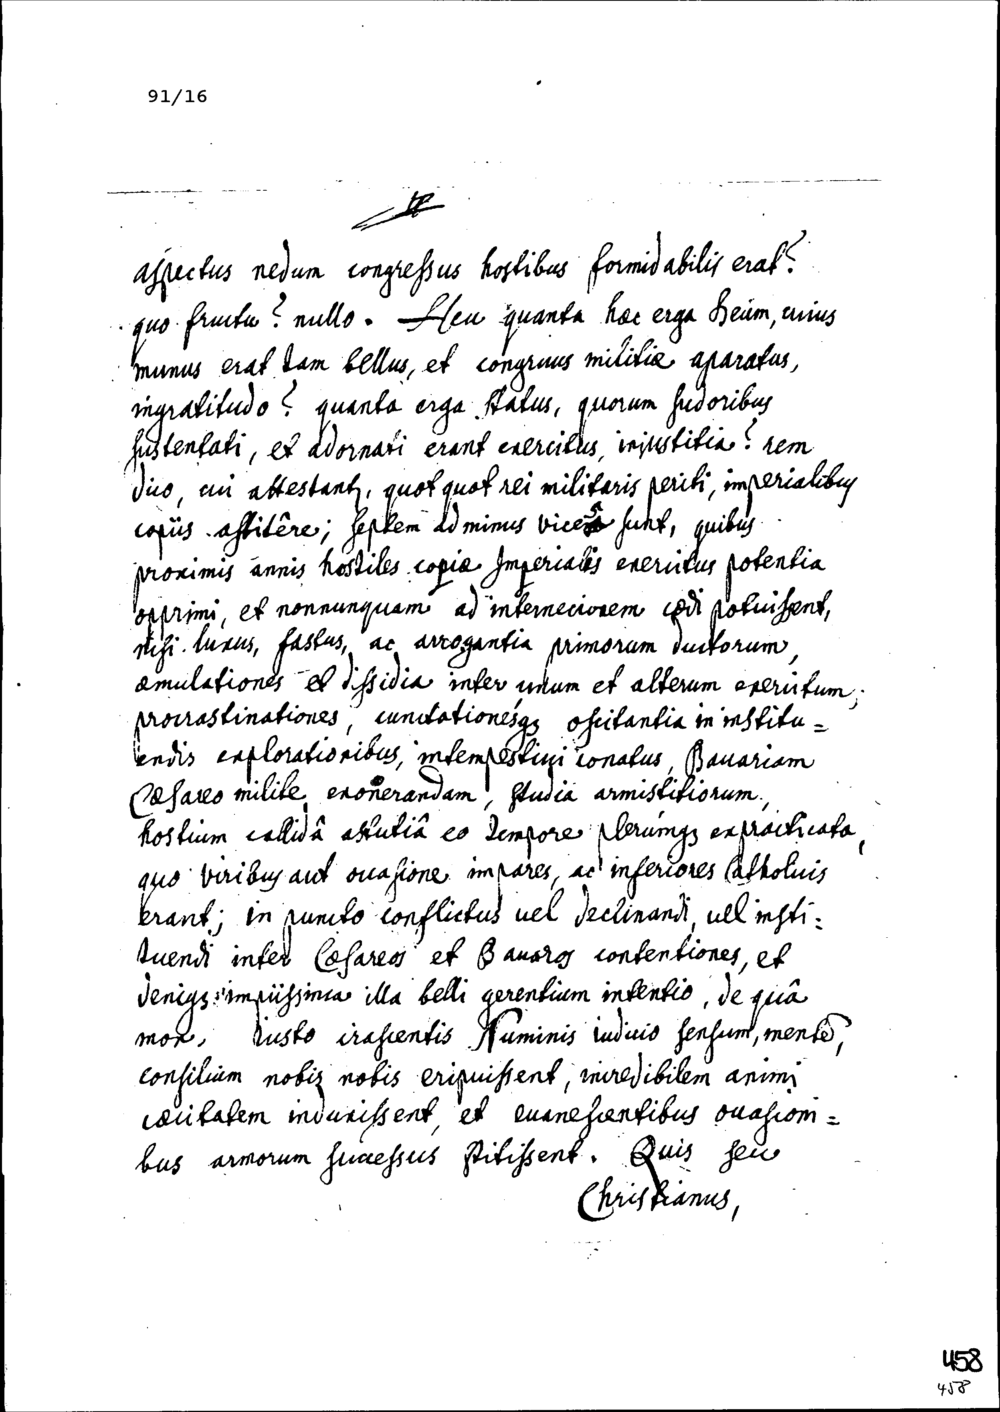 91/16
aspectus nedum congressus hostibus formidabilis erat?
quo fructu? nullo. Heu quanta hæc erga Deum, cuius
munus erat tam bellus, et congruus militiæ aparatus,
ingratitudo? quanta erga status, quorum sudoribus
sustentati, et adornati erant exercitus, iniustitia? rem
dico, cui attestantr, quotquot rei militaris periti, imperialibus
copiis astitêre; septem ad minus vices sunt, quibus
proximis annis hostiles copiæ Imperialis exercitus potentia
opprimi, et nonnunquam ad internecionem cædi potuissent,
nisi luxus, fastus, ac arrogantia primorum ductorum,
æmulationes et dissidia inter unum et alterum exercitum;
procrastinationes, cunctationesqz oscitantia in institu=
endis explorationibus, intempestivi conatus, Bavariam
Cæsareo milite exonerandam, studia armistitiorum,
hostium callidâ astutiâ eo tempore plerumqz expracticata,
quo viribus aut occasione impares, ac inferiores Catholicis
erant; in puncto conflictus vel declinandi, vel insti=
tuendi inter Cæsareos et Bavaros contentiones, et
deniqz impiissima illa belli gerentium intentio, de quâ
mox, iusto irascentis Numinis iudicio sensum, mentê,
consilium nobis nobis eripuissent, incredibilem animi
cæcitatem induxissent, et evanescentibus occasioni=
bus armorum successus stitissent. Quis seu
Christianus,
458
458